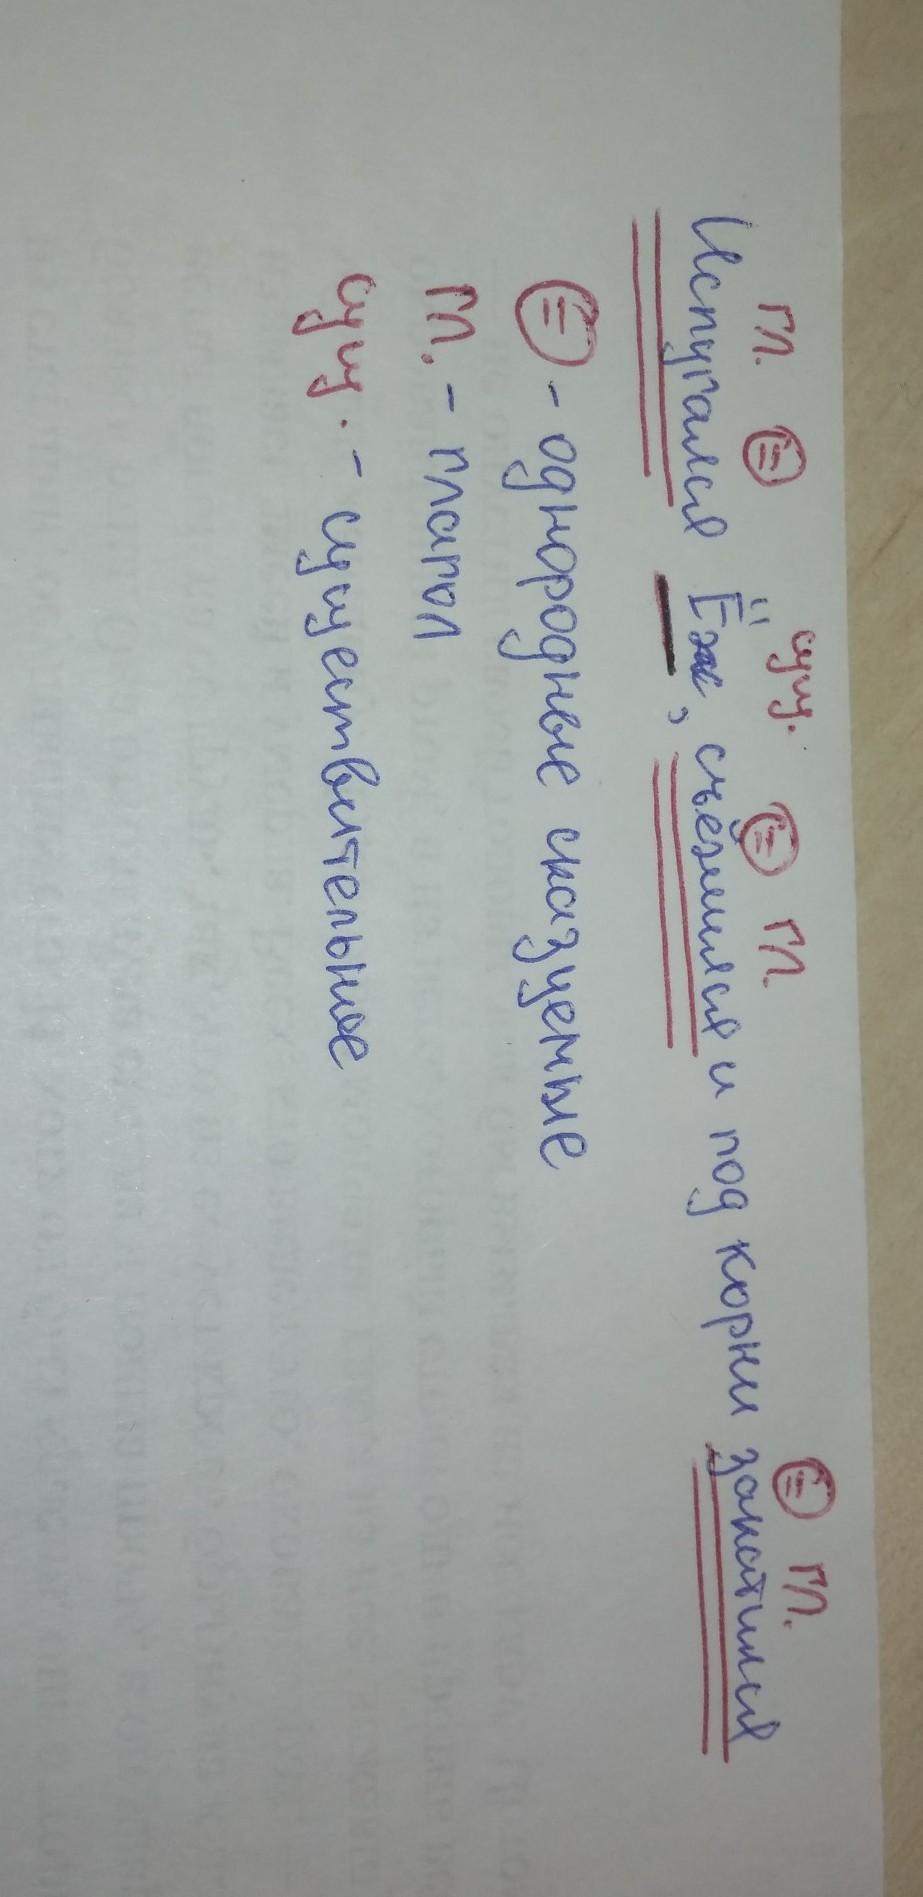 гл. = сущ. = гл. = гл.
Испугался Ёж, съёжился и под корни закатился
= - однородные сказуемые
гл. - глагол
сущ. - существительное